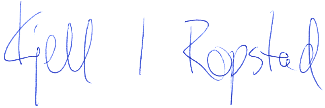 Kjell I Ropstad